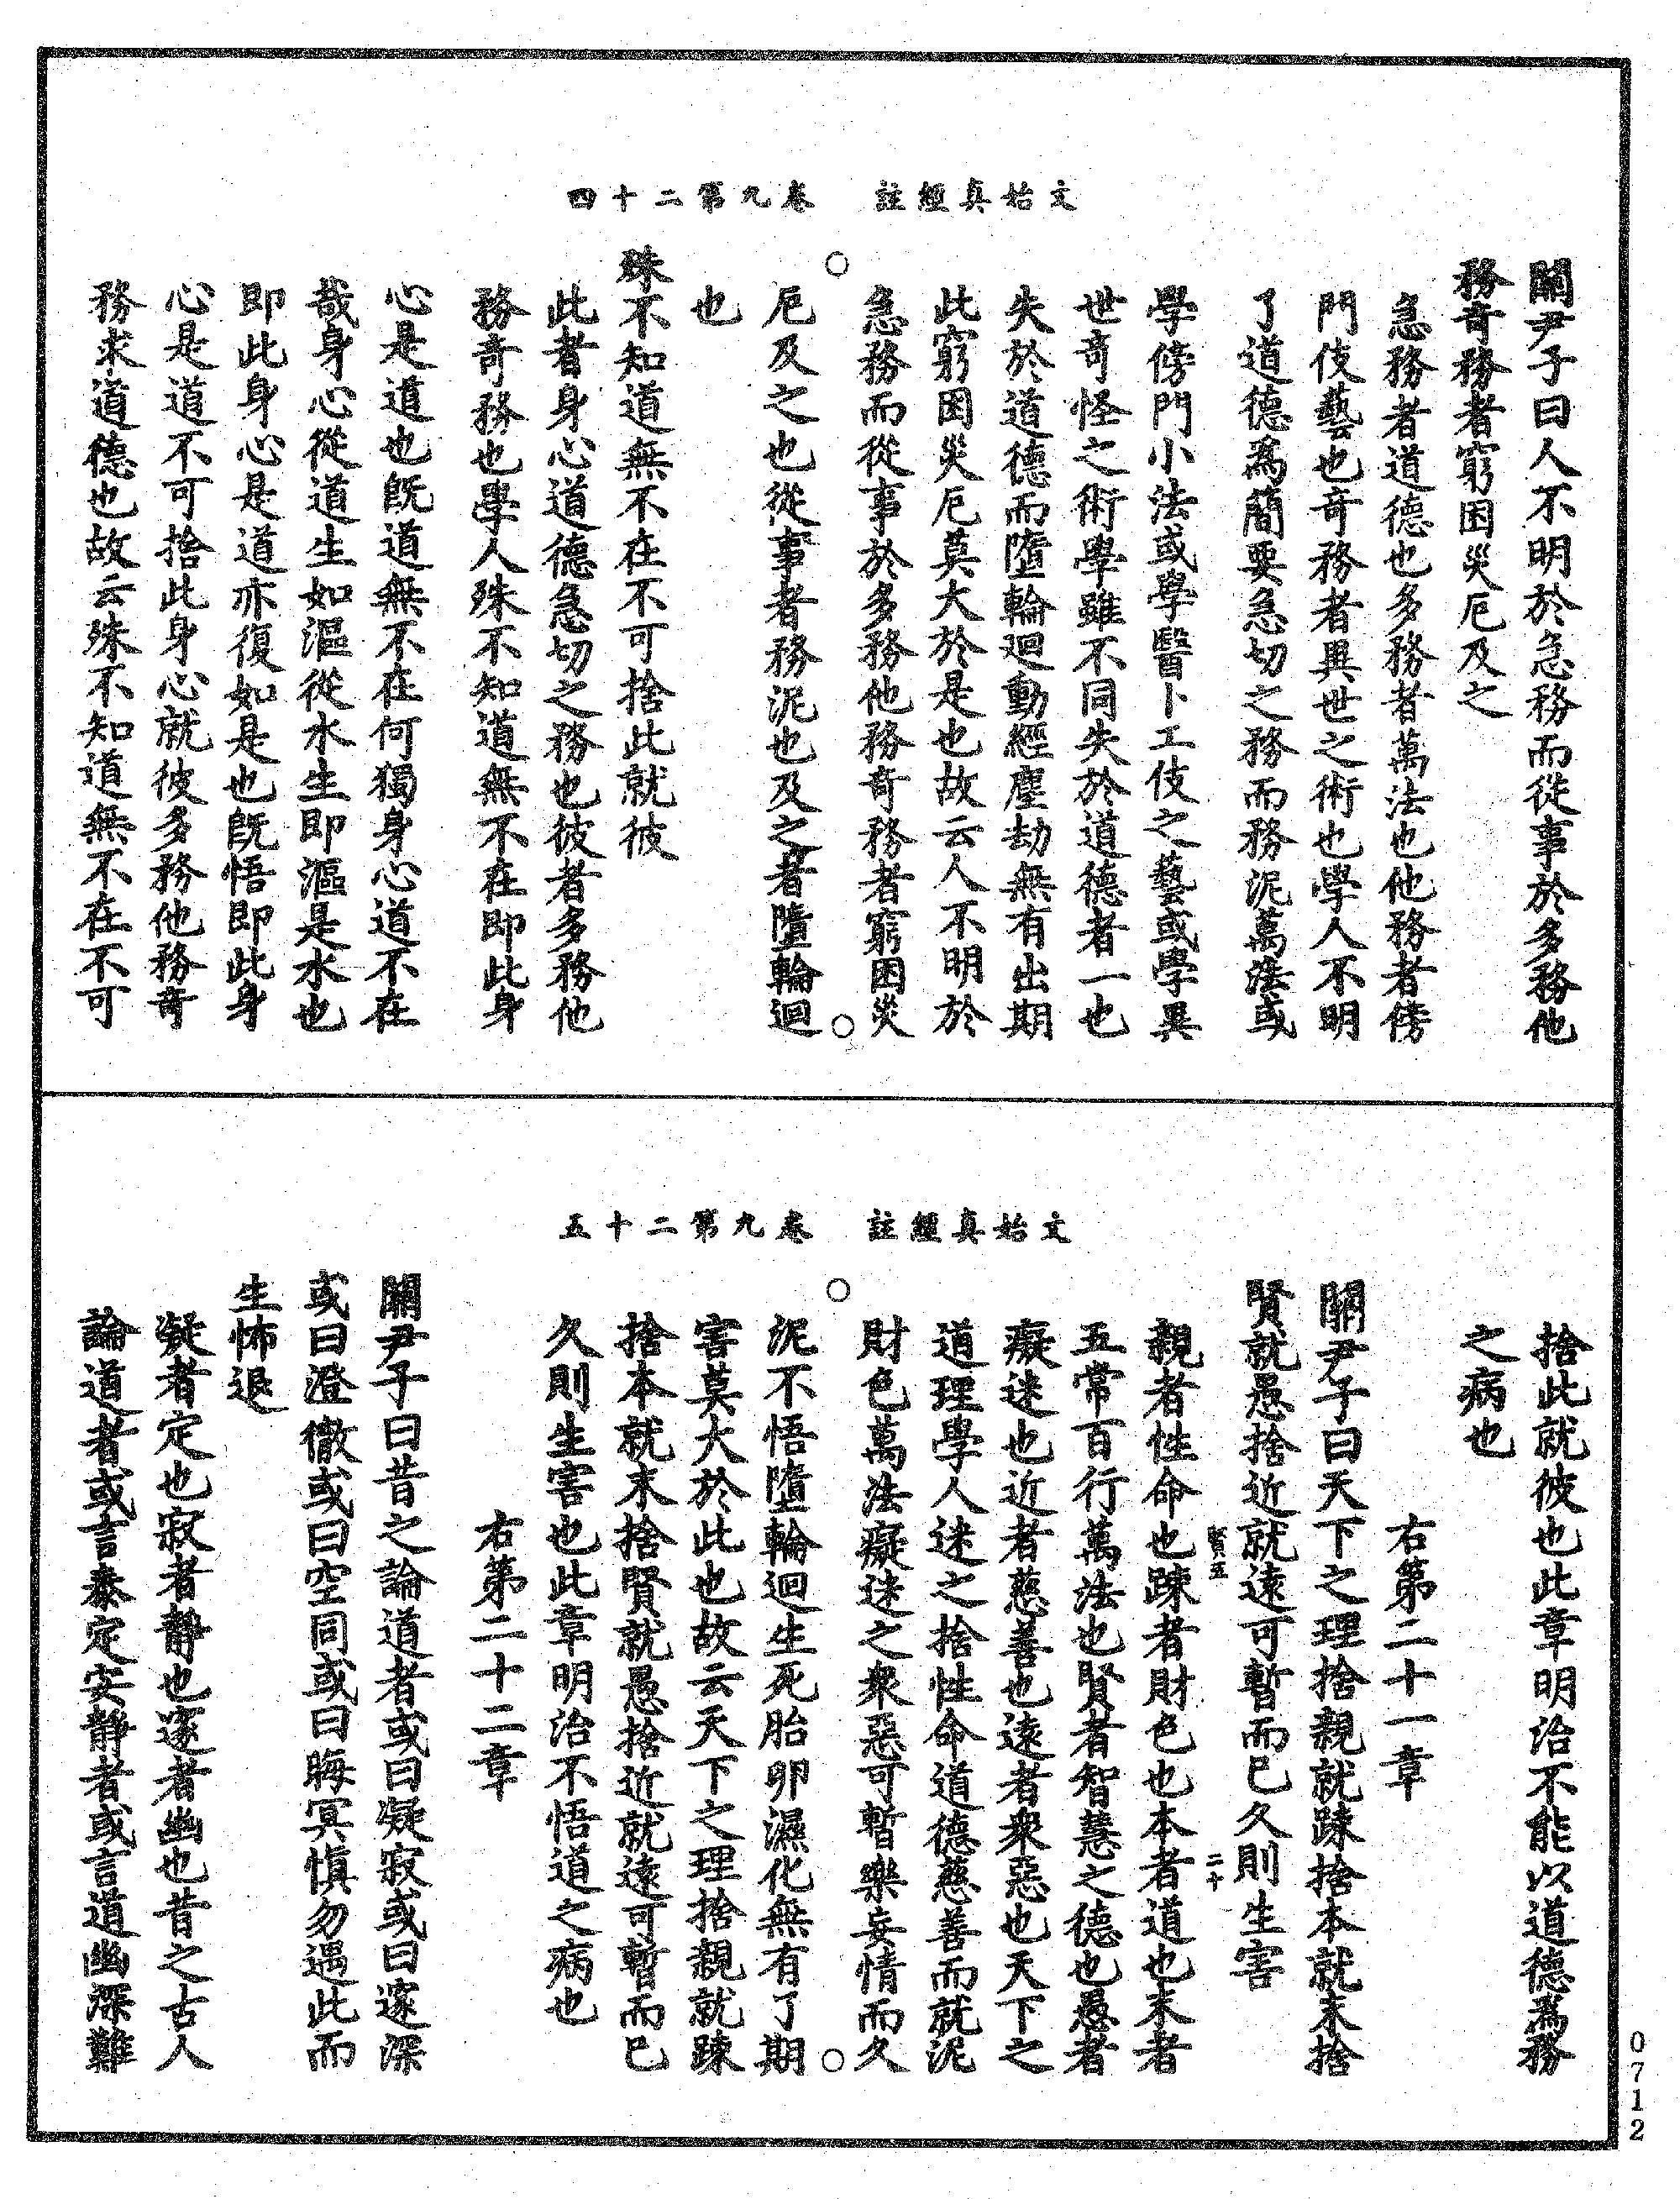 文始真經註　卷九第二十四
關尹子曰人不明於急務而從事於多務他
務奇務者窮困災厄及之
急務者道德也多務者萬法也他務者傍
門伎藝也奇務者異世之術也學人不明
了道德爲簡要急切之務而務泥萬法或
學傍門小法或學醫卜工伎之藝或學異
世奇怪之術學雖不同失於道德者一也
失於道德而墮輪迴動經塵劫無有出期
此窮困災厄莫大於是也故云人不明於
急務而從事於多務他務奇務者窮困災
厄及之也從事者務泥也及之者墮輪迴
也
殊不知道無不在不可捨此就彼
此者身心道德急切之務也彼者多務他
務奇務也學人殊不知道無不在即此身
心是道也既道無不在何獨身心道不在
哉身心從道生如漚從水生即漚是水也
即此身心是道亦復如是也既悟即此身
心是道不可捨此身心就彼多務他務奇
務求道德也故云殊不知道無不在不可
文始真經註　卷九第二十五
捨此就彼也此章明治不能以道德爲務
之病也
右第二十一章
關尹子曰天下之理捨親就踈捨本就末捨
賢就愚捨近就遠可暫而已久則生害
賢五　二十
親者性命也踈者財色也本者道也末者
五常百行萬法也賢者智慧之德也愚者
癡迷也近者慈善也遠者衆惡也天下之
道理學人迷之捨性命道德慈善而就泥
財色萬法癡迷之衆惡可暫樂妄情而久
泥不悟墮輪迴生死胎卵濕化無有了期
害莫大於此也故云天下之理捨親就踈
捨本就末捨賢就愚捨近就遠可暫而已
久則生害也此章明治不悟道之病也
右第二十二章
關尹子曰昔之論道者或曰凝寂或曰邃深
或曰澄徹或曰空同或曰晦冥慎勿遇此而
生怖退
凝者定也寂者靜也邃者幽也昔之古人
論道者或言泰定安靜者或言道幽深難
0712